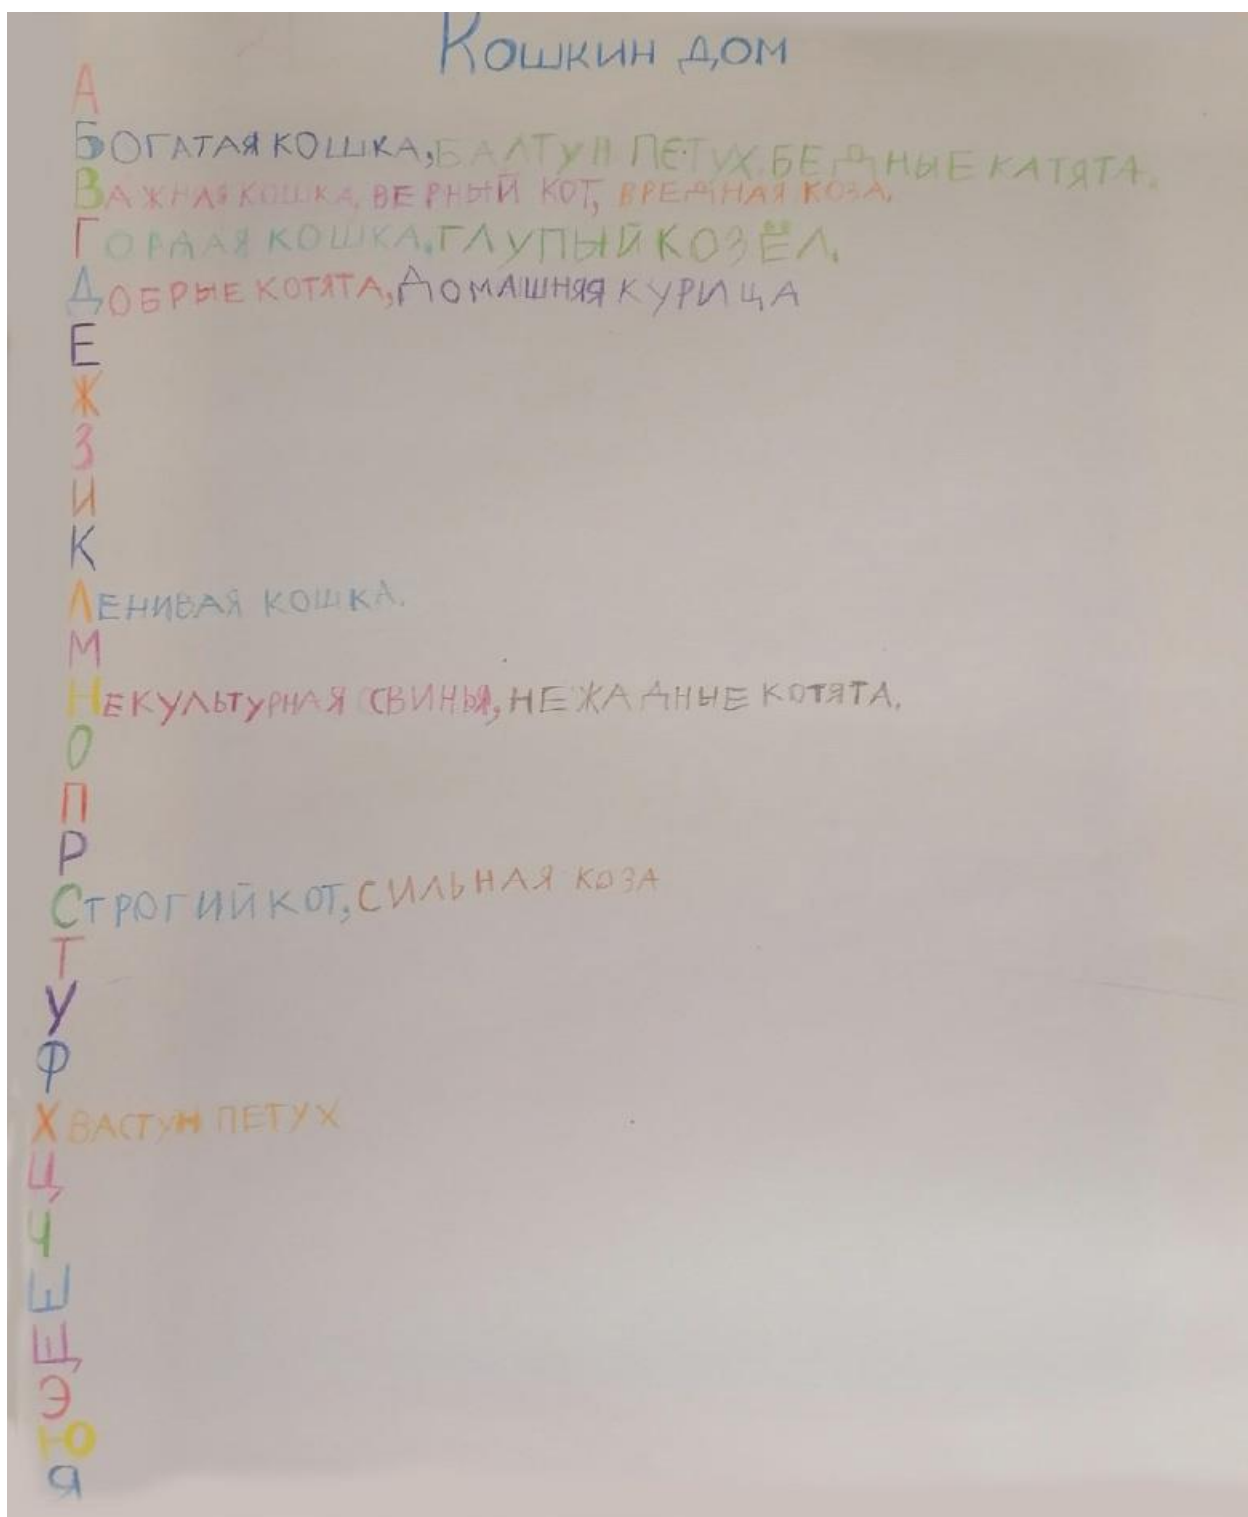 Кошкин дом
А
БОГАТАЯ КОШКА, БАЛТУН ПЕТУХ. БЕДНЫЕ КАТЯТА.
ВАЖНАЯ КОШКА, ВЕРНЫЙ КОТ, ВРЕДНАЯ КОЗА.
ГОРДАЯ КОШКА, ГЛУПЫЙ КОЗЁЛ.
ДОБРЫЕ КОТЯТА, ДОМАШНЯЯ КУРИЦА
Е
Ж
З
И
К
ЛЕНИВАЯ КОШКА.
М
НЕКУЛЬТУРНАЯ СВИНЬЯ, НЕЖАДНЫЕ КОТЯТА.
О
П
Р
СТРОГИЙ КОТ, СИЛЬНАЯ КОЗА
Т
У
Ф
ХВАСТУН ПЕТУХ
Ц
Ч
Ш
Щ
Э
Ю
Я